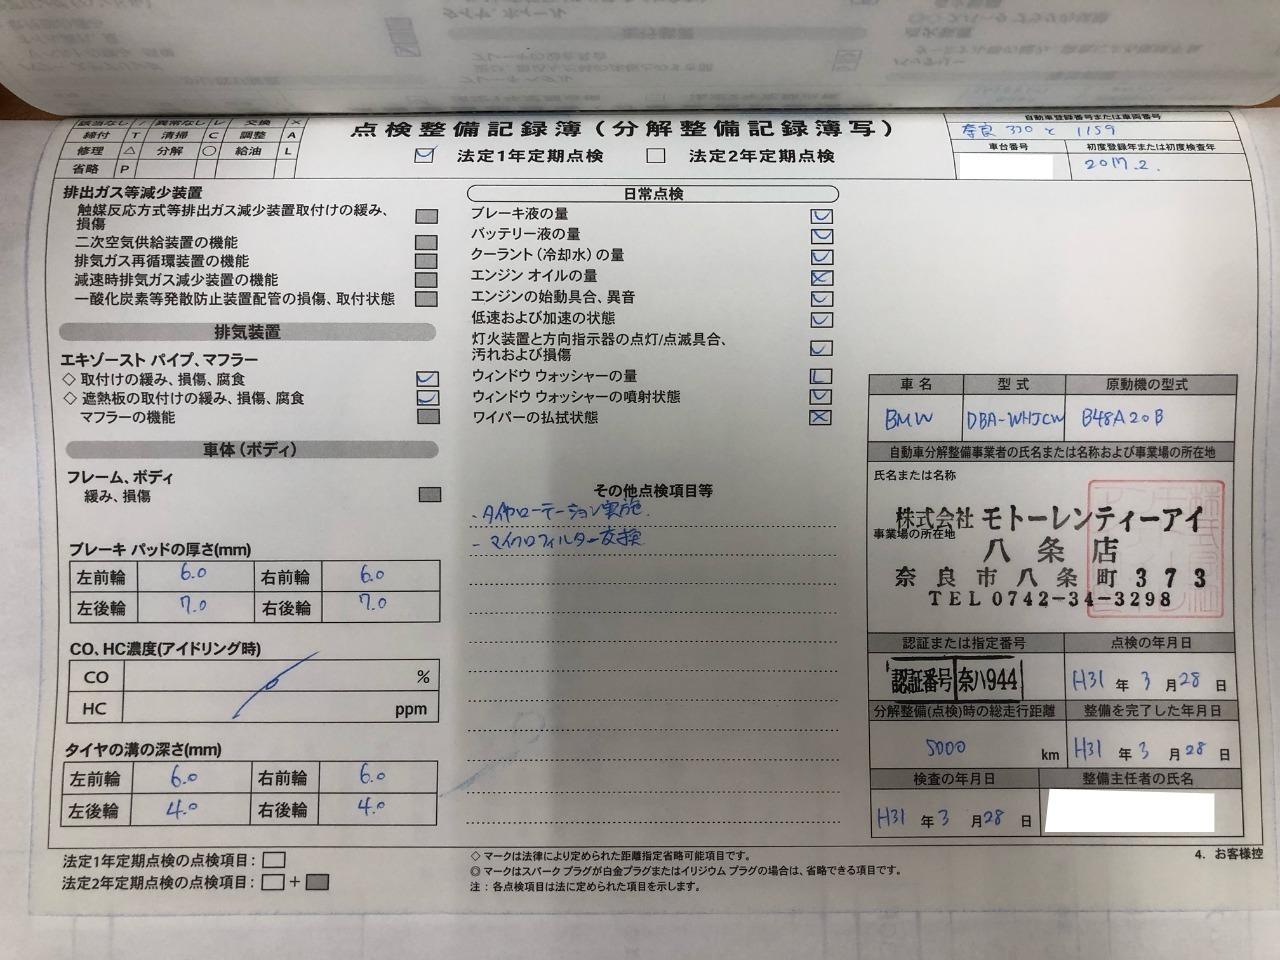 該当なし / 異常なし レ 交換 ×
締付 T 清掃 C 調整 A
修理 △ 分解 ○ 給油 L
省略 P
点検整備記録簿(分解整備記録簿写)
法定1年定期点検 法定2年定期点検
自動車登録番号または車両番号
奈良 330 と 1159
車台番号 初度登録年または初度検査年
2017.2.
排出ガス等減少装置
触媒反応方式等排出ガス減少装置取付けの緩み、
損傷
二次空気供給装置の機能
排気ガス再循環装置の機能
減速時排気ガス減少装置の機能
一酸化炭素等発散防止装置配管の損傷、取付状態
排気装置
エキゾースト パイプ、マフラー
◇ 取付けの緩み、損傷、腐食
◇ 遮熱板の取付けの緩み、損傷、腐食
マフラーの機能
車体(ボディ)
フレーム、ボディ
緩み、損傷
ブレーキ パッドの厚さ(mm)
左前輪 6.0 右前輪 6.0
左後輪 7.0 右後輪 7.0
CO、HC濃度(アイドリング時)
CO %
HC ppm
タイヤの溝の深さ(mm)
左前輪 6.0 右前輪 6.0
左後輪 4.0 右後輪 4.0
法定1年定期点検の点検項目:
法定2年定期点検の点検項目: +
日常点検
ブレーキ液の量 レ
バッテリー液の量 レ
クーラント(冷却水)の量 レ
エンジン オイルの量 ×
エンジンの始動具合、異音 レ
低速および加速の状態 レ
灯火装置と方向指示器の点灯/点滅具合、
汚れおよび損傷 レ
ウィンドウ ウォッシャーの量 L
ウィンドウ ウォッシャーの噴射状態 レ
ワイパーの払拭状態 ×
その他点検項目等
- タイヤローテーション実施
- マイクロフィルター交換
◇ マークは法律により定められた距離指定省略可能項目です。
◎ マークはスパーク プラグが白金プラグまたはイリジウム プラグの場合は、省略できる項目です。
注:各点検項目は法に定められた項目を示します。
車名 型式 原動機の型式
BMW DBA-WHJCW B48A20B
自動車分解整備事業者の氏名または名称および事業場の所在地
氏名または名称
株式会社 モトーレンティーアイ
事業場の所在地
八条店
奈良市八条町373
TEL 0742-34-3298
認証または指定番号 点検の年月日
認証番号 奈ハ944 H31 年 3 月 28 日
分解整備(点検)時の総走行距離 整備を完了した年月日
5000 km H31 年 3 月 28 日
検査の年月日 整備主任者の氏名
H31 年 3 月 28 日
4. お客様控